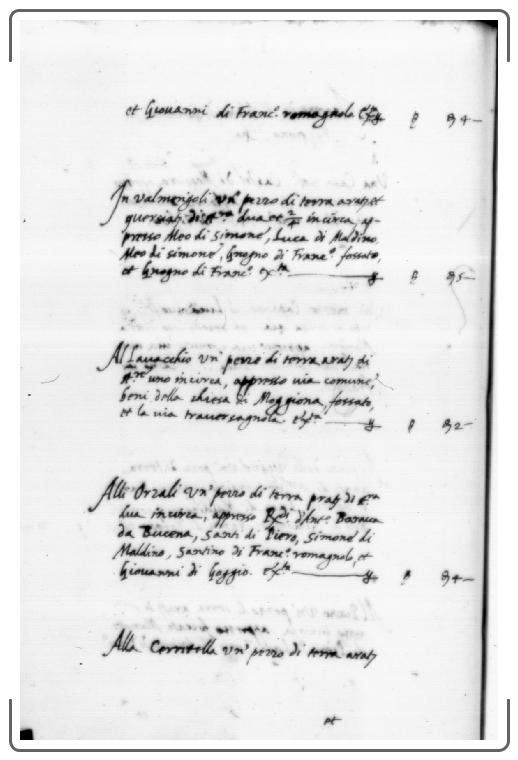 et Giovanni di Franc.o romagnolo
In Valmerigoli un' pezzo di terra arat; et
querciat; di dua et 2/4 incirca ap-
presso Meo di Simone, Luca di Maldino,
Meo di simone, Gnogno di Franc.o fossato,
et Gnogno di Franc.o
Al Lavacchio un' pezzo di terra arat; di
uno incirca, appresso via comune,
beni della chiesa di Moggiona, fossato,
et la via traversagnola.
Alli Orzali un' pezzo di terra prat; di
dua incirca, appresso d'Ant.o Baracca
da Bucena, Santi di Piero, Simone di
Maldino, Santino di Franc.o romagnolo, et
Giovanni di Goggio.
Alla Cerretella un' pezzo di terra arat;
et